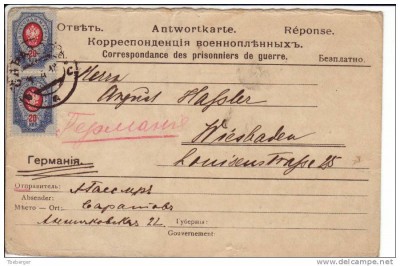 Отвѣтъ. Antwortkarte. Réponse.
Корреспонденція военноплѣнныхъ.
Correspondance des prisonniers de guerre. Безплатно.
Herrn
August Hassler
Германія
Wiesbaden
Louisenstrasse 25
Германія.
Отправитель:
Absender:
Мѣсто - Ort: Саратовъ
22. Губернія:
Gouvernement
Tusberger
delcampe.net